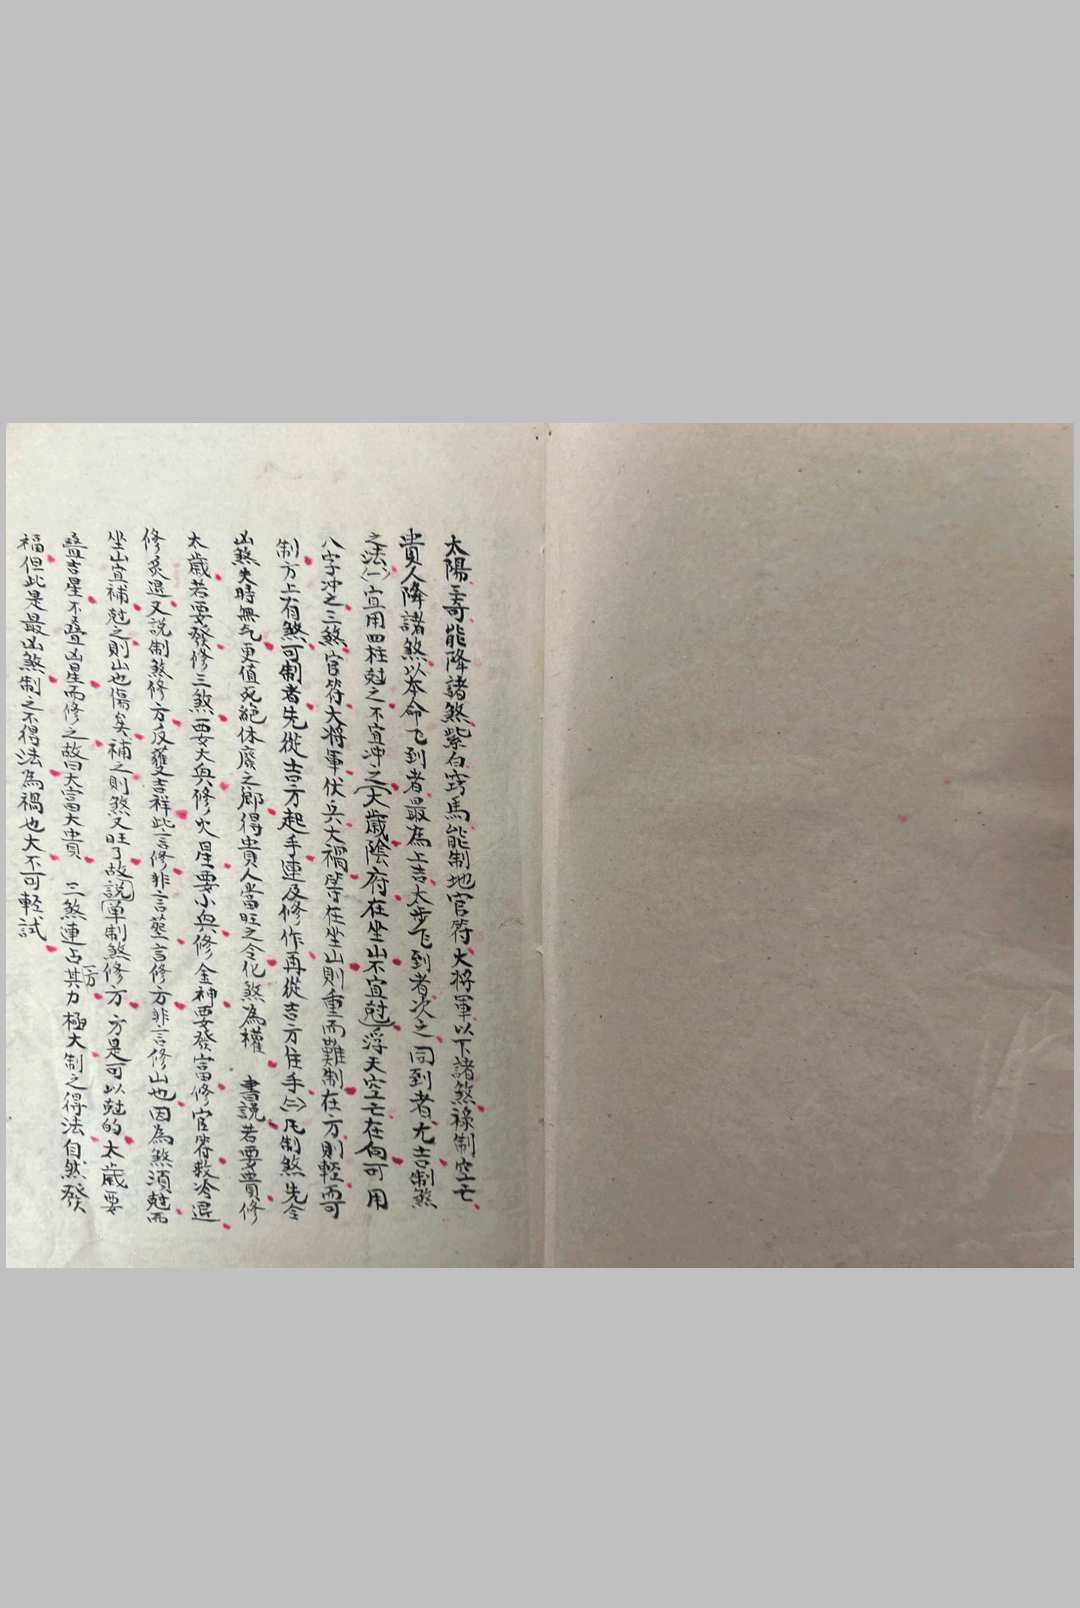 太陽三奇能降諸煞紫白竅馬能制地官符大將軍以下諸煞祿制空亡
貴人降諸煞以本命飞到者最為上吉太歩飞到者次之同到者尤吉制煞
之法㈠宜用四柱尅之不宜冲之(大歲陰府在坐山不宜尅)浮天空亡在向可用
八字冲之三煞官符大將軍伏兵大禍等在坐山則重而難制在方則輕而可
制方上有煞可制者先從吉方起手連及修作再從吉方住手㈡凡制煞先令
凶煞失時無气更值死絕休廢之鄉得貴人當旺之令化煞為權 書説若要貴修
太歲若要發修三煞要大與修火星要小與修金神要發富修官符救冷退
修炙退又説制煞修方反獲吉祥此言修非言葬言修方非言修山也因為煞須尅而
坐山宜補尅之則山也傷矣補之則煞又旺了故説單制煞修方方是可以尅的太歲要
疊吉星不疊凶星而修之故曰大富大貴 三煞連占一方其力極大制之得法自然發
福但此是最凶煞制之不得法為禍也大不可輕試